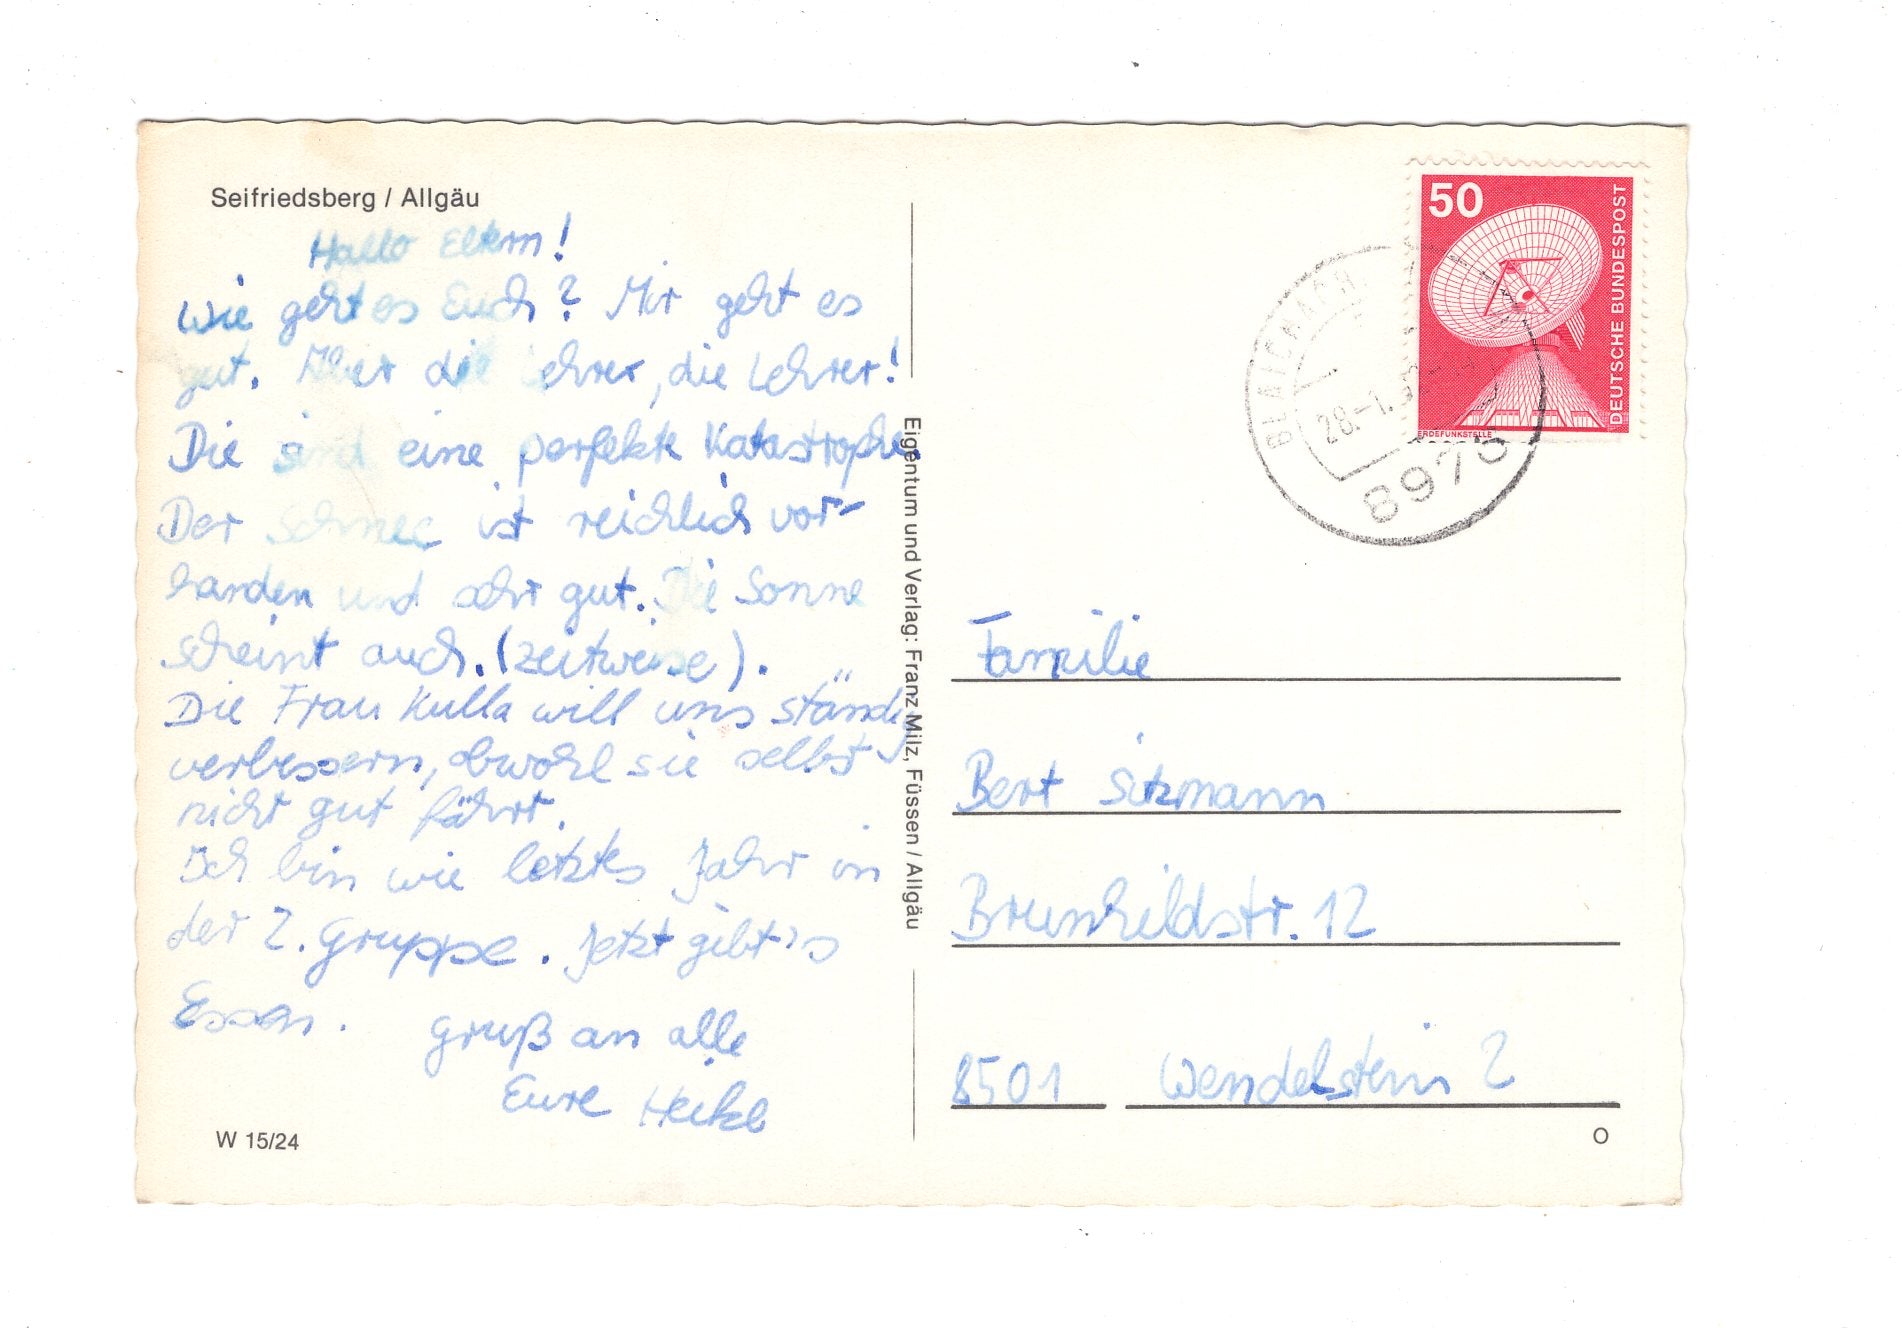 Seifriedsberg / Allgäu
Hallo Eltern!
Wie geht es Euch? Mir geht es
gut. Aber die Lehrer, die Lehrer!
Die sind eine perfekte Katastrophe.
Der Schnee ist reichlich vor-
handen und sehr gut. Die Sonne
scheint auch. (zeitweise).
Die Frau Kulla will uns ständig
verbessern, obwohl sie selbst
nicht gut fährt.
Ich bin wie letztes Jahr in
der 2. Gruppe. Jetzt gibt's
Essen.
Gruß an alle
Eure Heike
W 15/24
Eigentum und Verlag: Franz Milz, Füssen / Allgäu
50
DEUTSCHE BUNDESPOST
ERDEFUNKSTELLE
BLAICHACH
28.-1.
8976
Familie
Bert Sitzmann
Brunhildstr. 12
8501 Wendelstein 2
O